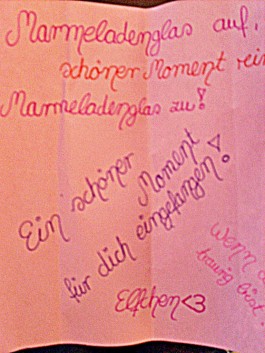 Marmeladenglas auf,
schöner Moment rein
Marmeladenglas zu!
Ein schöner Moment
für dich eingefangen!
Wenn d
traurig bist.
Elfchen<3